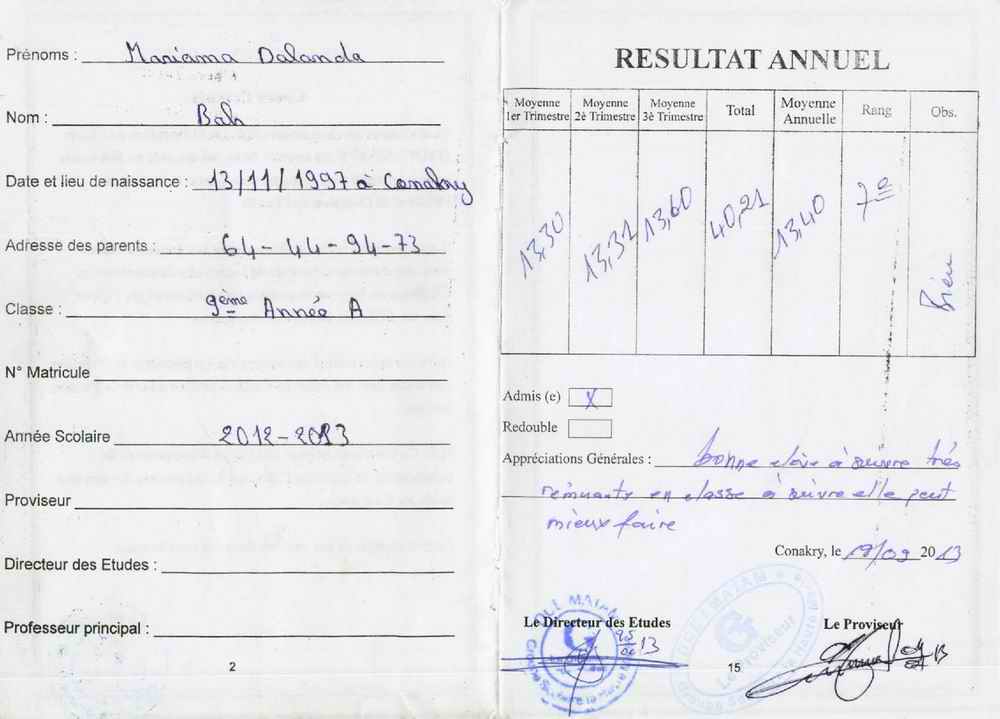 Prénoms : Mariama Dalanda
Nom : Bah
Date et lieu de naissance : 13/11/1997 à Conakry
Adresse des parents : 64-44-94-73
Classe : 9ème Année A
N° Matricule
Année Scolaire 2012-2013
Proviseur
Directeur des Etudes :
Professeur principal :
2
RESULTAT ANNUEL
Moyenne 1er Trimestre
Moyenne 2è Trimestre
Moyenne 3è Trimestre
Total
Moyenne Annuelle
Rang
Obs.
13,30
13,31
13,60
40,21
13,40
7e
Bien
Admis (e) X
Redouble
Appréciations Générales : bonne elève à suivre très
remuante en classe à suivre elle peut
mieux faire
Conakry, le 2013
Le Directeur des Etudes
Le Proviseur
15